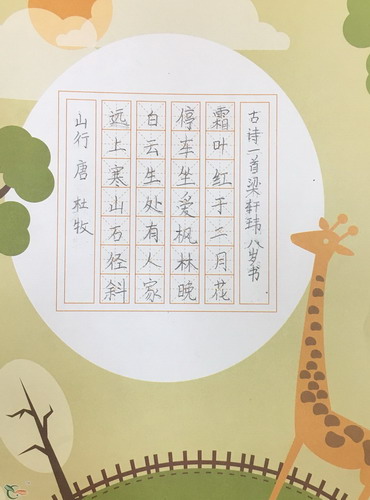 山行 唐 杜牧
远上寒山石径斜
白云生处有人家
停车坐爱枫林晚
霜叶红于二月花
古诗一首梁轩玮八岁书